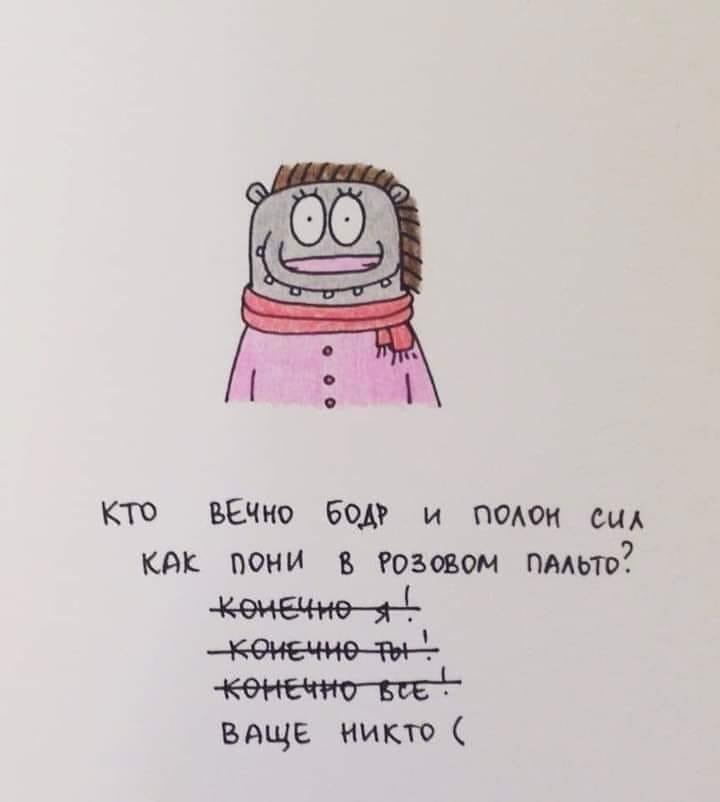 КТО ВЕЧНО БОДР И ПОЛОН СИЛ
КАК ПОНИ В РОЗОВОМ ПАЛЬТО?
КОНЕЧНО Я!
КОНЕЧНО ТЫ!
КОНЕЧНО ВСЕ!
ВАЩЕ НИКТО (